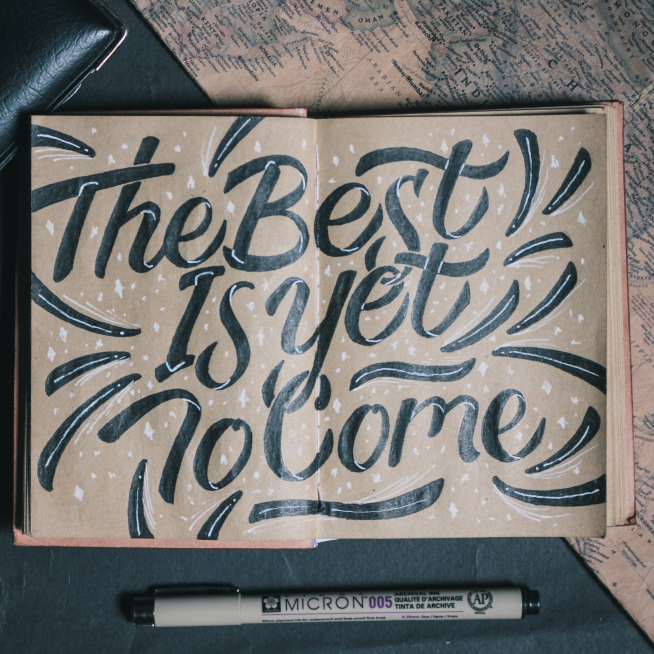 OMAN
The Best
Is yet
To Come
MICRON 005
ARCHIVAL INK
QUALITÉ D'ARCHIVAGE
TINTA DE ARCHIVE
AP